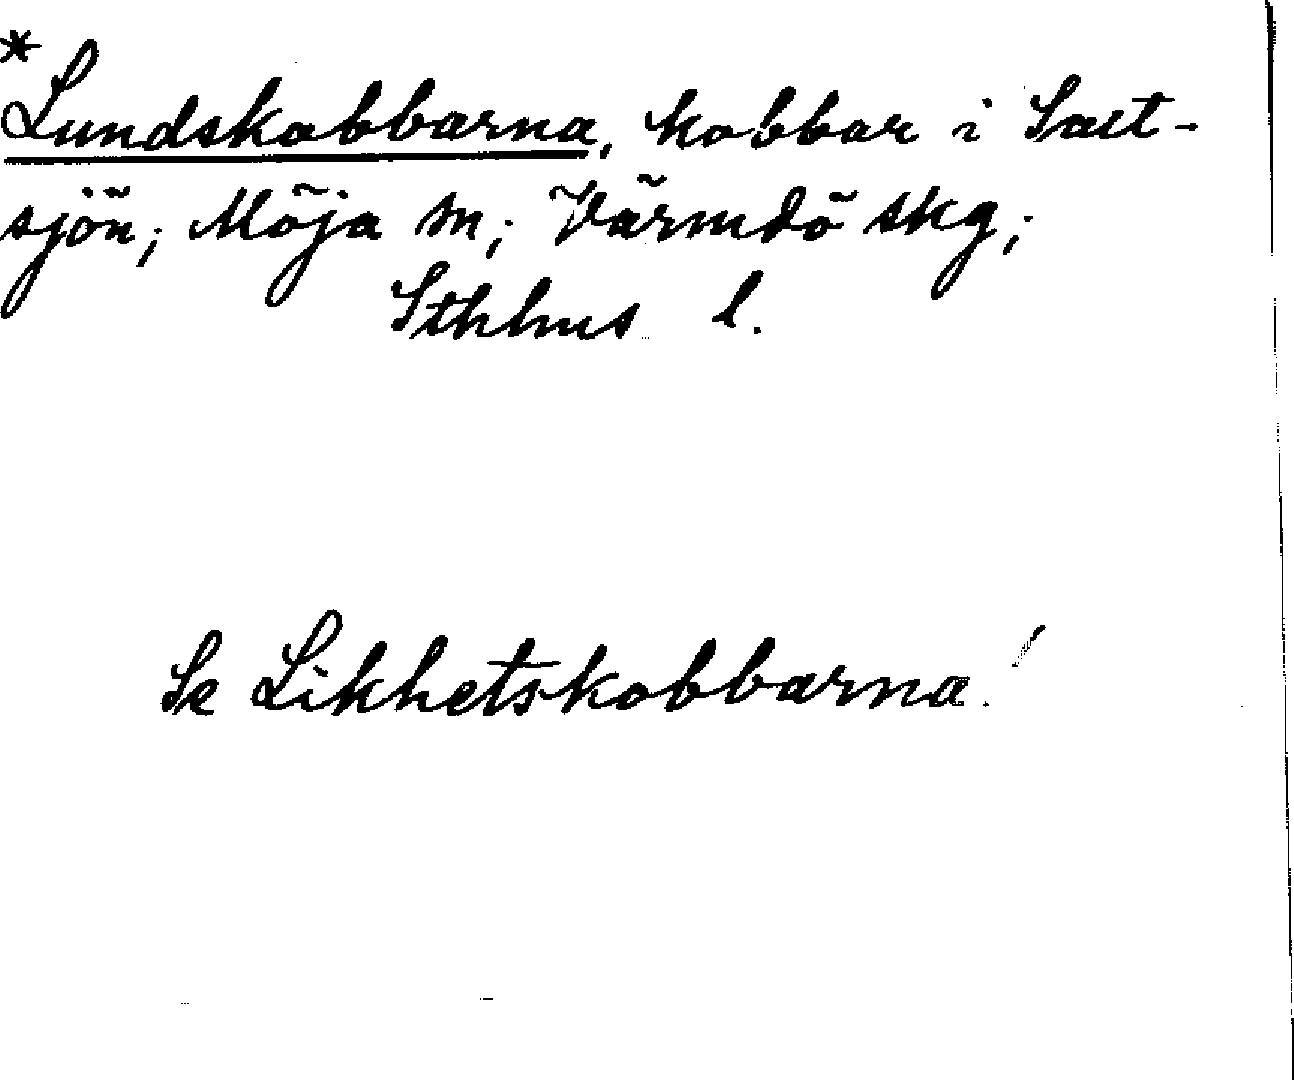 *
Lundskobbarna, kobbar i Salt-
sjön; Möja sn; Värmdö skg;
Sthlms l.
Se Likhetskobbarna!